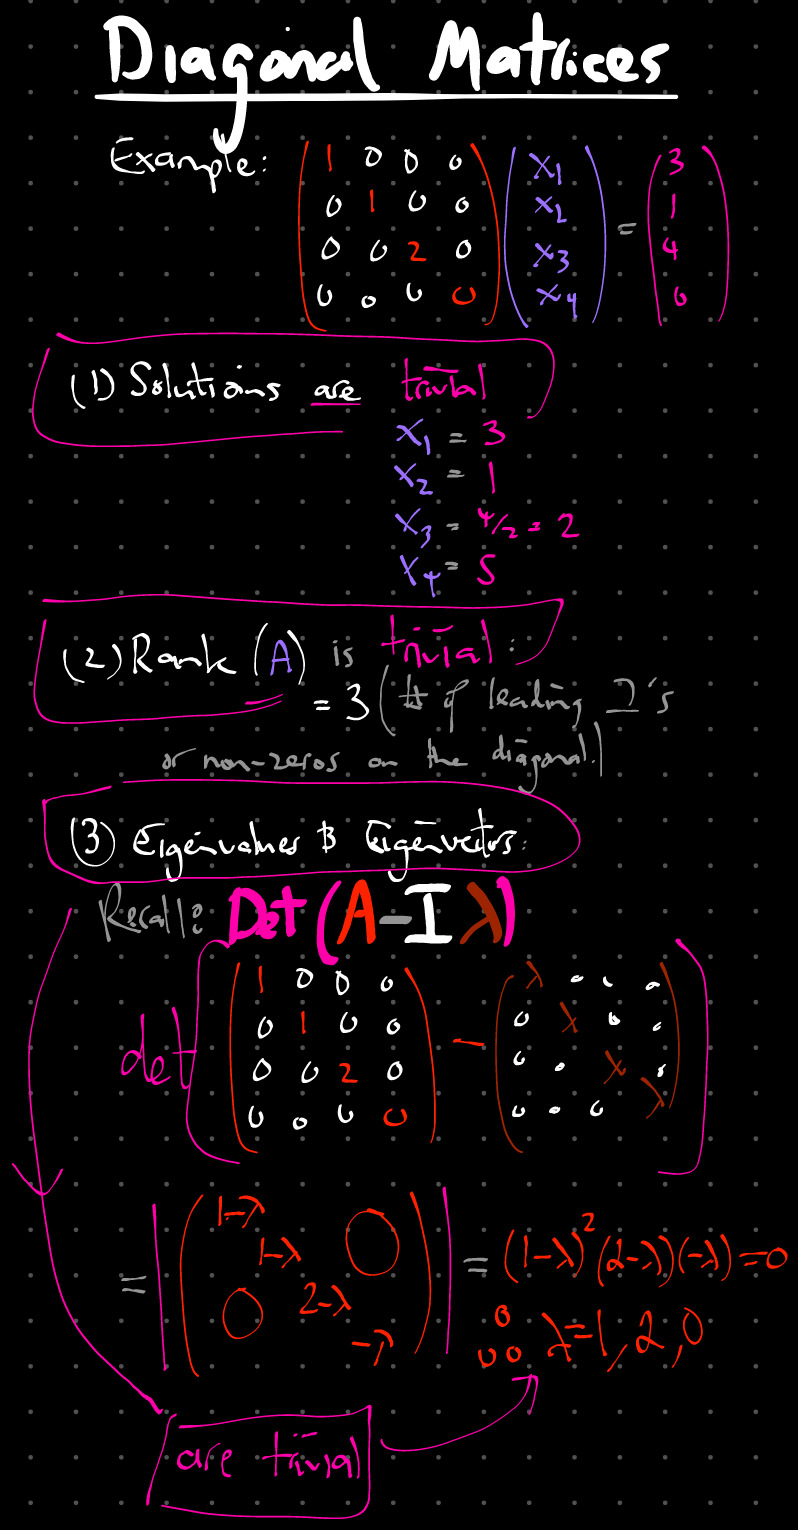 Diagonal Matrices
Example: (1 0 0 0) (x1) = (3)
(0 1 0 0) (x2) (1)
(0 0 2 0) (x3) (4)
(0 0 0 0) (x4) (0)
(1) Solutions are trivial
x1 = 3
x2 = 1
x3 = 4/2 = 2
x4 = S
(2) Rank (A) is trivial:
= 3 (# of leading 1's
or non-zeros on the diagonal.)
(3) Eigenvalues & Eigenvectors:
Recall: Det (A-Iλ)
det [(1 0 0 0) - (λ 0 0 0)]
(0 1 0 0) (0 λ 0 0)
(0 0 2 0) (0 0 λ 0)
(0 0 0 0) (0 0 0 λ)
= |(1-λ
1-λ 0
0 2-λ
-λ)| = (1-λ)²(2-λ)(-λ)=0
∴ λ=1,2,0
are trivial